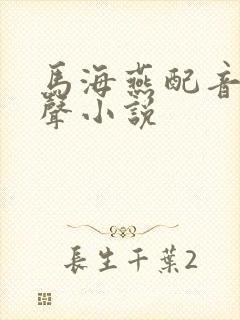 馬海燕配音
聲小説
長生千葉2